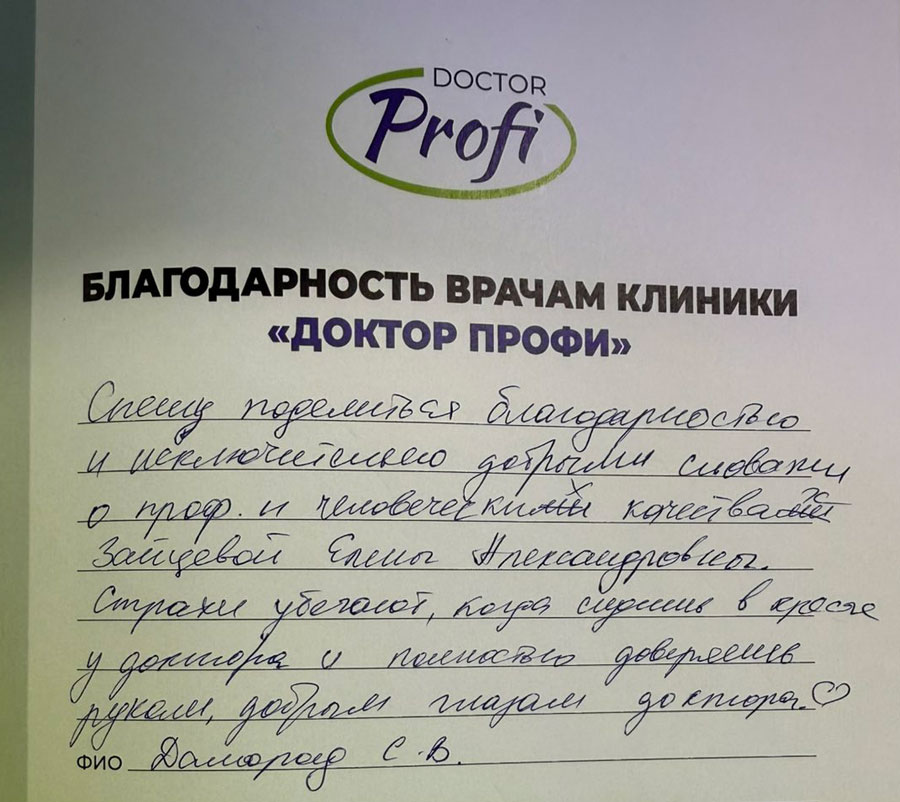 DOCTOR
Profi
БЛАГОДАРНОСТЬ ВРАЧАМ КЛИНИКИ
«ДОКТОР ПРОФИ»
Спешу поделиться благодарностью
и исключительно добрыми словами
о проф. и человеческих качествах
Зайцевой Елены Александровны.
Страхи убегают, когда сидишь в кресле
у доктора и полностью доверяешь
рукам, добрым глазам доктора.♡
ФИО С. В.